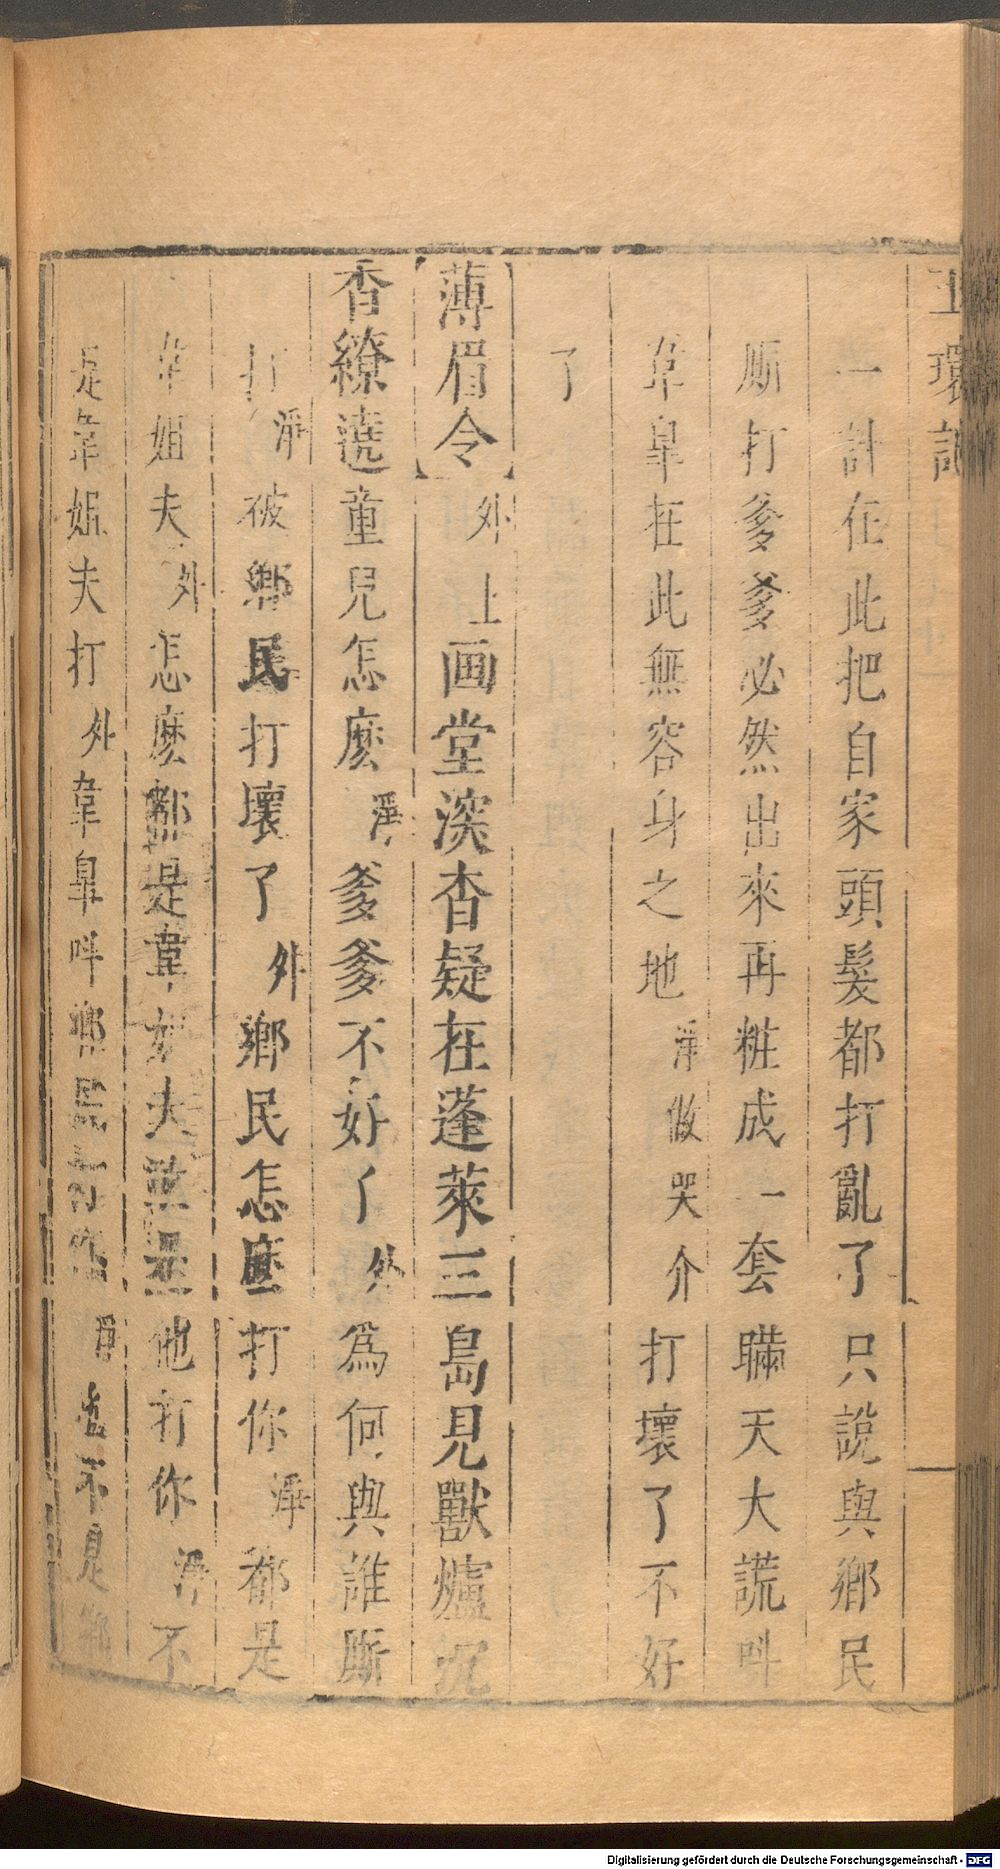 玉環記
一計在此把自家頭髮都打亂了只說與鄉民
厮打爹爹必然出來再粧成一套瞞天大謊呌
韋臯在此無容身之地淨做哭介打壞了不好
了
薄眉令外上画堂深杳疑在蓬萊三島見獸爐沉
香繚遶童兒怎麽淨爹爹不好了外爲何與誰厮
打淨被鄉民打壞了外鄉民怎麽打你淨都是
韋姐夫外怎麽都是韋姐夫就是他打你淨不
是韋姐夫打外韋臯呌鄉民打你淨也不是鄉
Digitalisierung gefördert durch die Deutsche Forschungsgemeinschaft - DFG